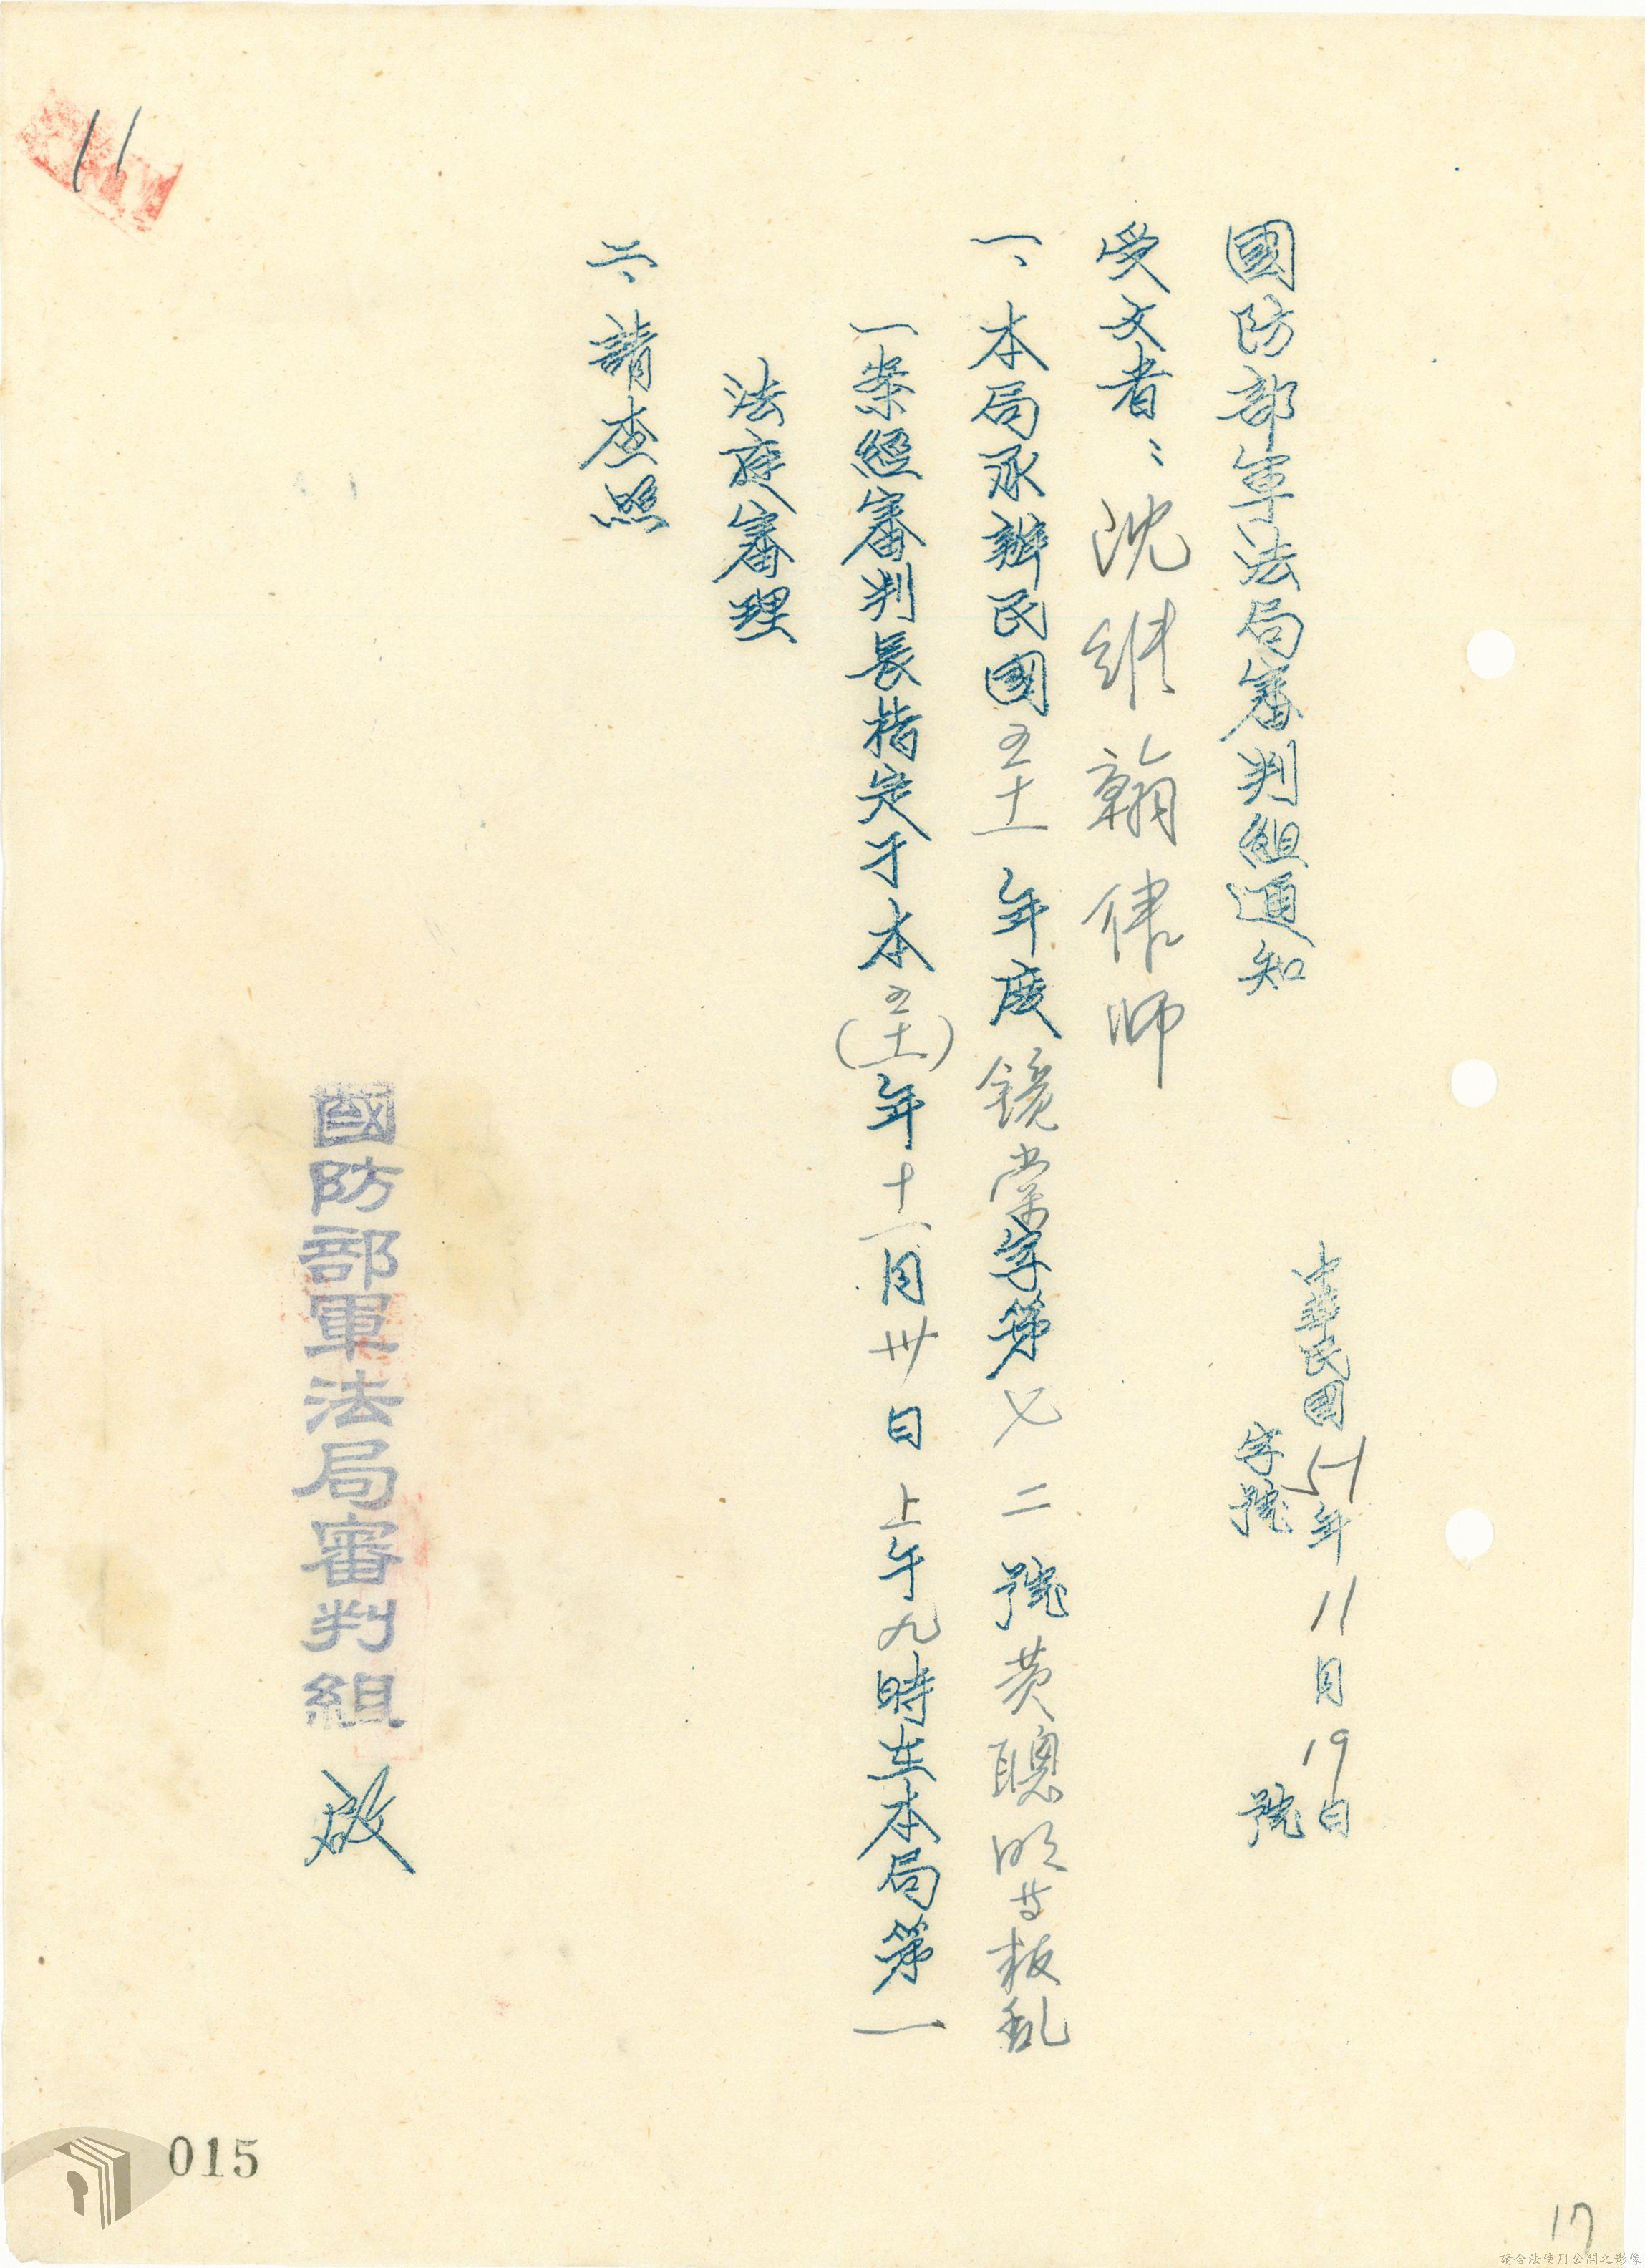 國防部軍法局審判組通知
中華民國51年11月19日
字號
號
受文者：沈維翰律師
一、本局承辦民國五十一年度鏡棠字第七二號黃聰明等叛乱
一案經審判長指定于本(五十一)年十一月卅日上午九時在本局第一
法庭審理
二、請查照
國防部軍法局審判組啟
11
015
17
請合法使用公開之影像